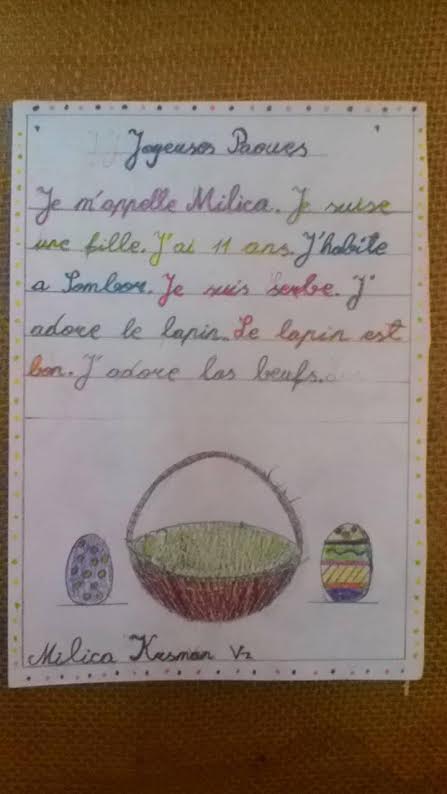 Joyeuses Paques
Je m'appelle Milica. Je suise
une fille. J'ai 11 ans. J'habite
a Sombor. Je suis serbe. J'
adore le lapin. Le lapin est
bon. J'adore las beufs.
Milica Krsman V2